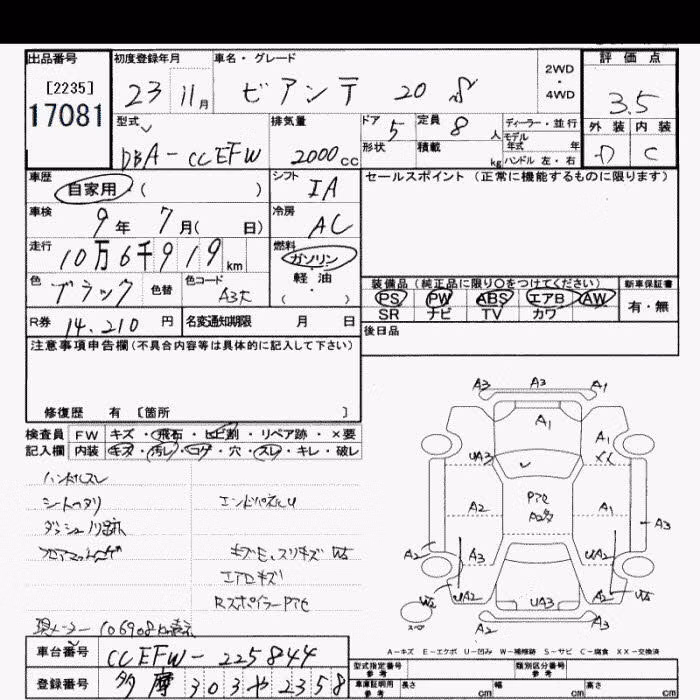 出品番号 初度登録年月 車名・グレード 2WD・4WD 評価点
[2235]
17081
23 11月 ビアンテ 20 S 3.5
型式 排気量 ドア 定員 ディーラー・並行 外装 内装
DBA-CCEFW 2000cc 5 8人 モデル年式 年 D C
形状 積載 kg ハンドル 左・右
車歴 シフト セールスポイント (正常に機能するものに限ります)
自家用 ( ) IA
車検 冷房
9年 7月( 日) AC
走行 燃料
10万6千919km ガソリン・軽油
色 色替 色コード ( ) 装備品(純正品に限り○をつけてください) 新車保証書
ブラック A3F PS PW ABS エアB AW 有・無
SR ナビ TV カワ
R券 名変通知期限 月 日 後日品
14.210円
注意事項申告欄(不具合内容等は具体的に記入して下さい)
修復歴 有 〔箇所 〕
検査員 FW キズ・飛石・ヒビ割・リペア跡・×要
記入欄 内装 キズ・汚レ・コゲ・穴・スレ・キレ・破レ
ハンドルスレ
エンドパネルU
エアロキズ
RスポイラーP
現メーター 106908km表示
A3 A3 A1
A1 A1
UA3 XX
A2 A1 A3
A2 A3 UA2
W2 UA2 UA3 A2
A2 A3
スペア
A-キズ E-エクボ U-凹み W-補修跡 S-サビ C-腐食 XX-交換済
車台番号 CCEFW-225844
型式指定番号 参考 類別区分番号 参考
登録番号 多摩 303 や 2358
車庫証明用 参考 長さ cm 幅 cm 高さ cm